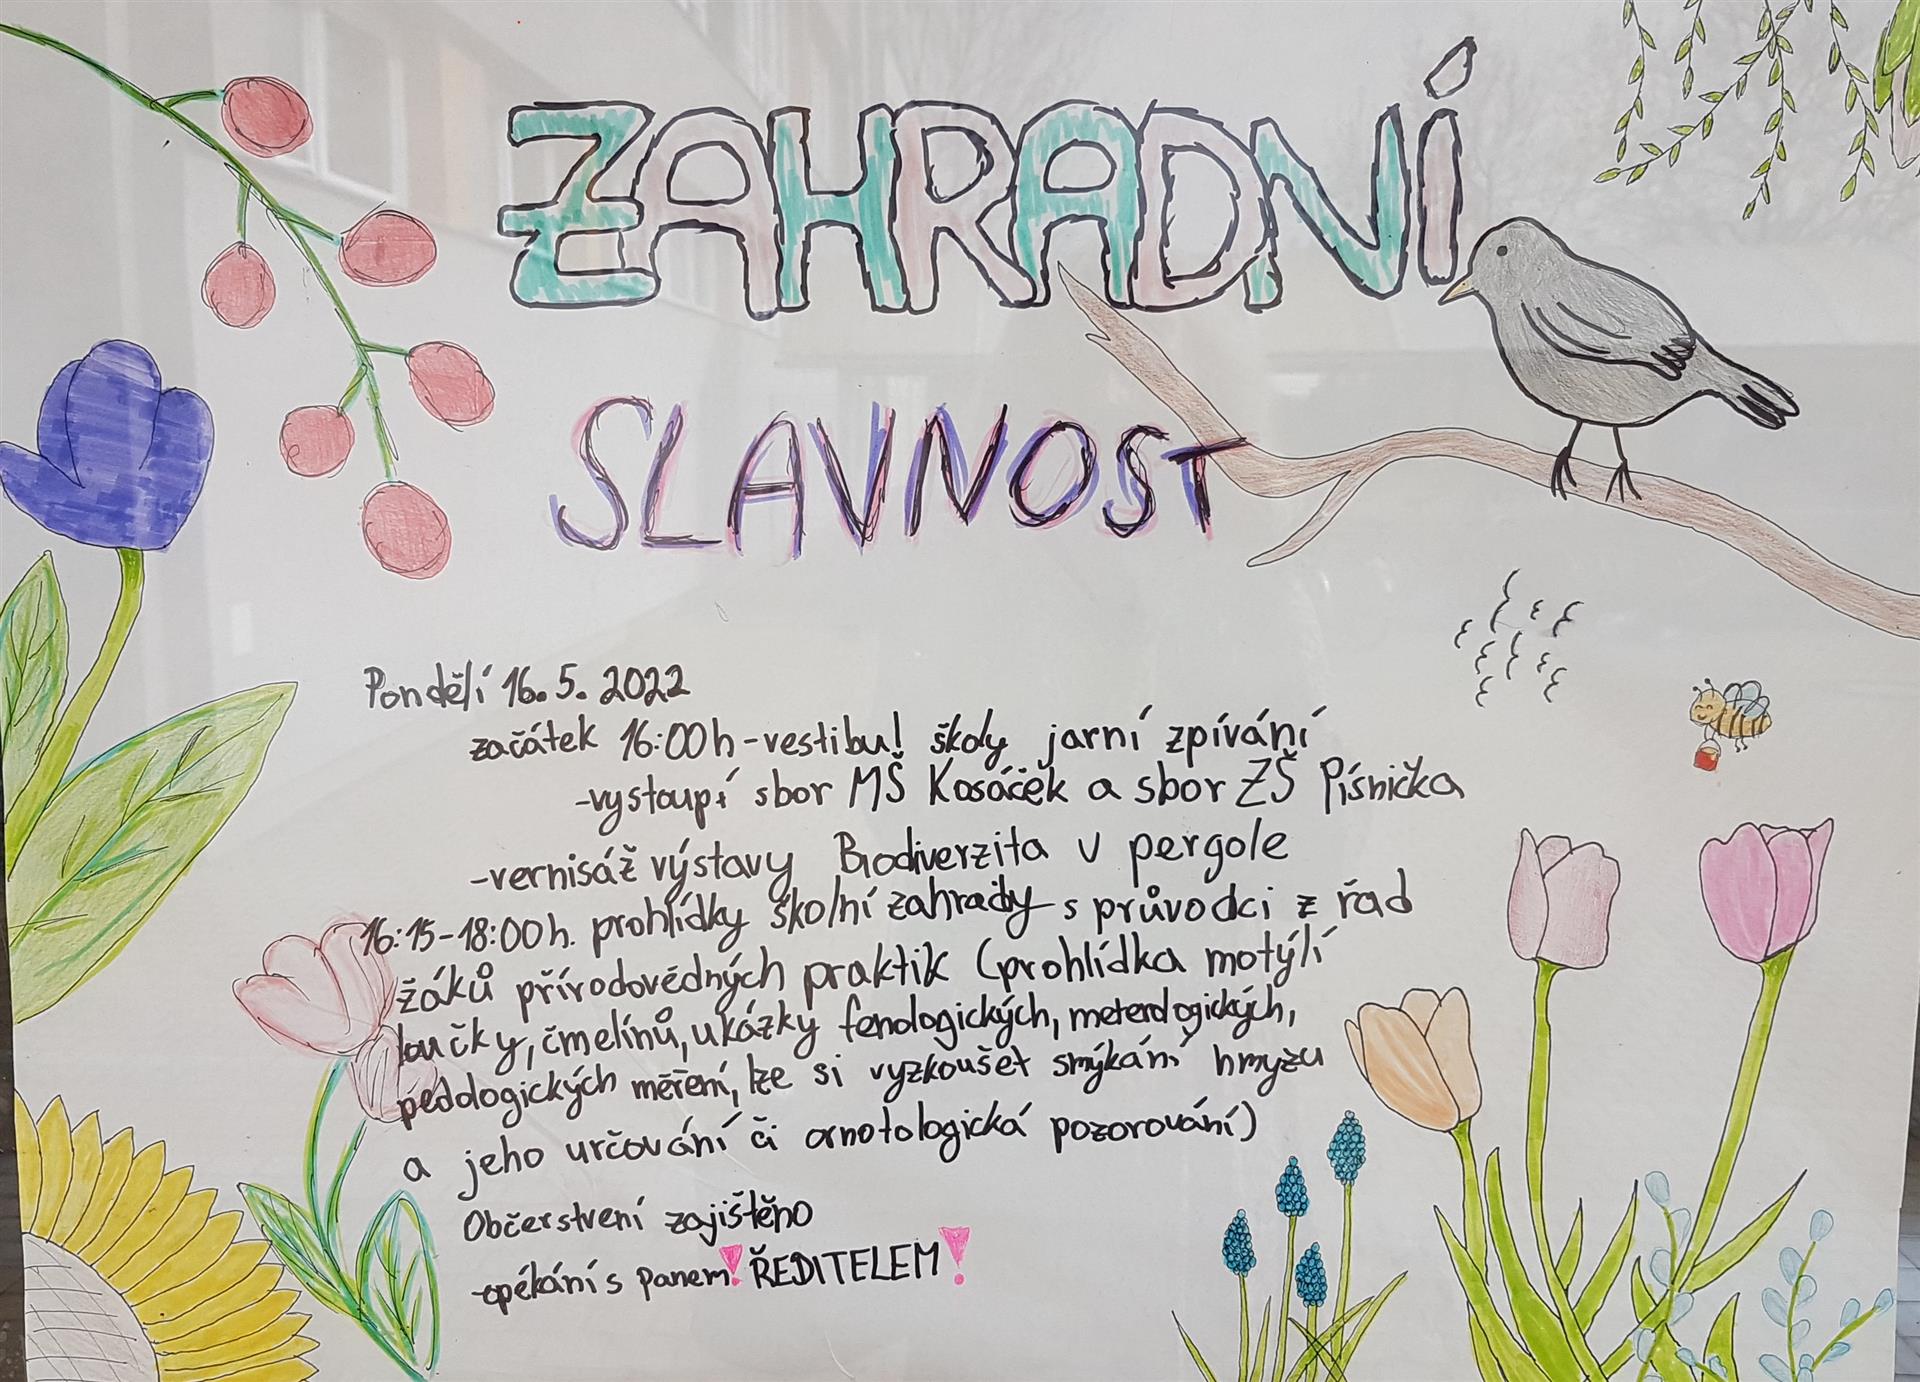 ZAHRADNÍ
SLAVNOST
Pondělí 16. 5. 2022
začátek 16:00h - vestibul školy jarní zpívání
-vystoupí sbor MŠ Kosáček a sbor ZŠ Písnička
-vernisáž výstavy Biodiverzita v pergole
16:15-18:00h. prohlídky školní zahrady s průvodci z řad
žáků přírodovědných praktik (prohlídka motýlí
loučky, čmelínů, ukázky fenologických, meterologických,
pedologických měření, lze si vyzkoušet smýkání hmyzu
a jeho určování či ornotologická pozorování)
Občerstvení zajištěno
-opékání s panem! ŘEDITELEM!